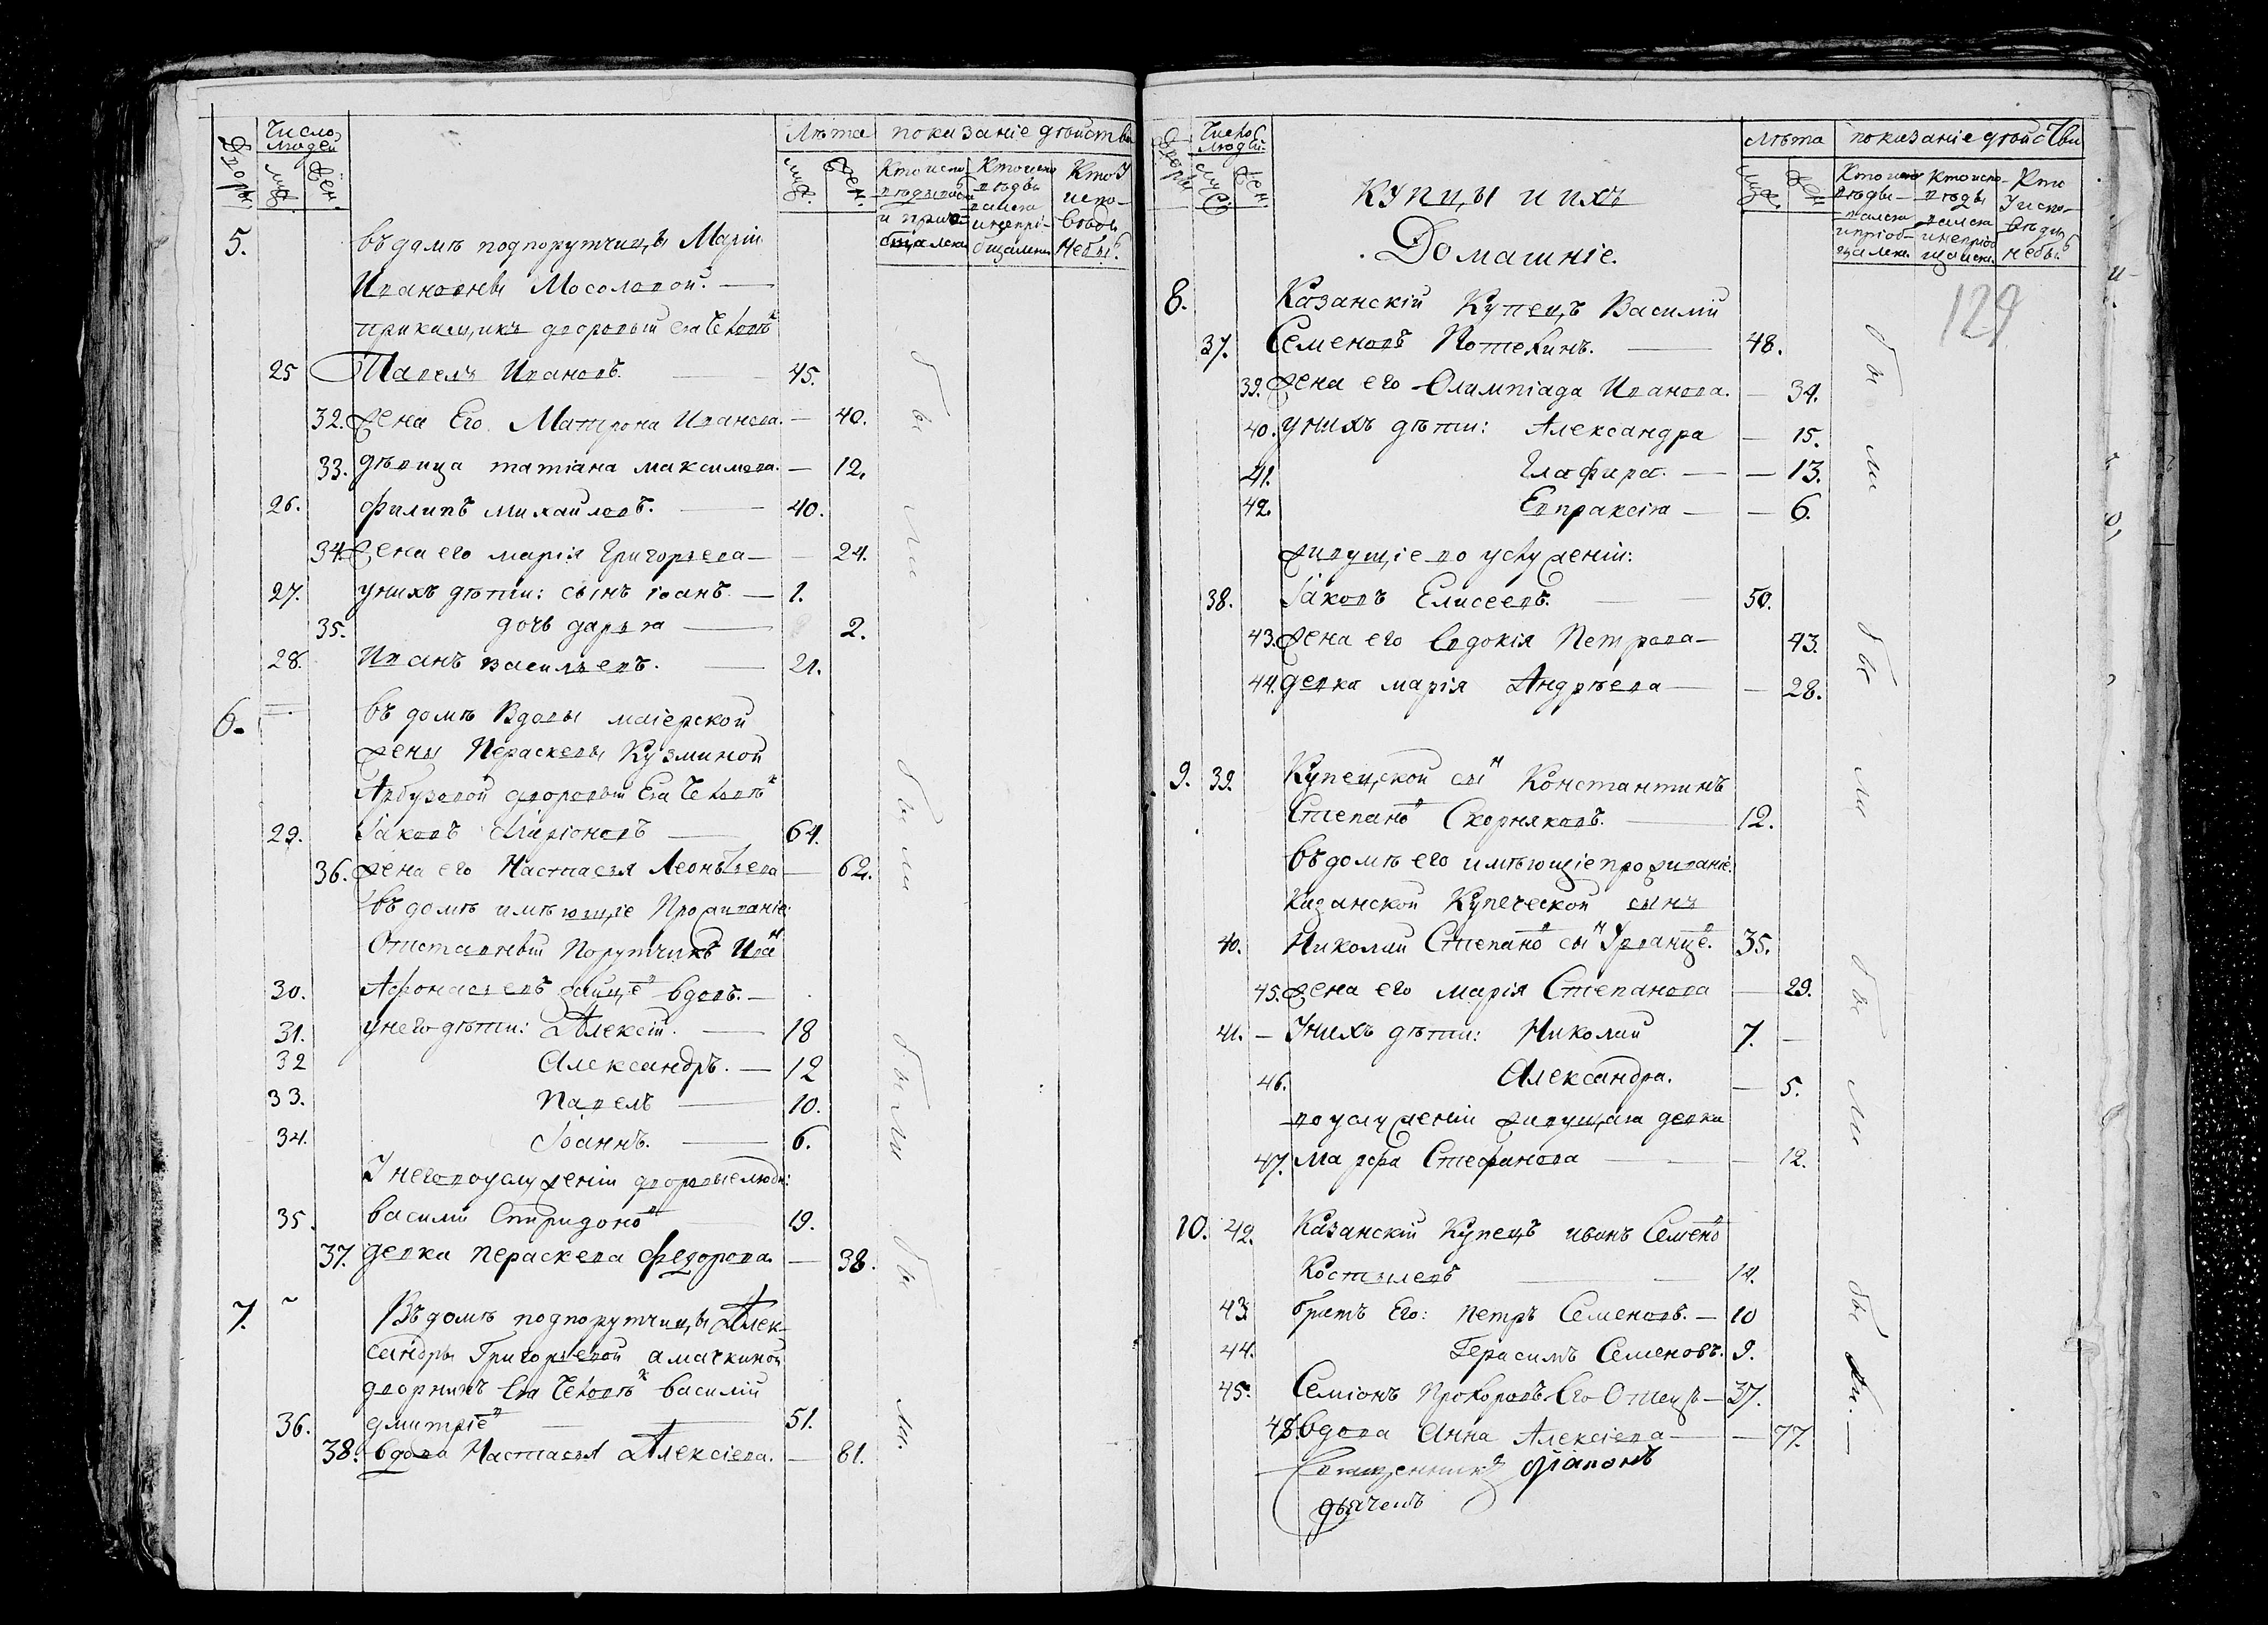 Дворы.
Число людей
муж.
жен.
Лѣта
муж.
жен.
показаніе дѣйства
Кто испо
вѣдывался
и прио-
бщался
Кто испо
вѣды
вался
и непрі-
общался
Кто у
испо-
вѣди
Небы.
5. въ домѣ подпорутчицы Маріи
Ивановны Мосоловой. —
прикащикъ дворовый Ея Человѣк
25 Павелъ Ивановъ. — 45.
32. жена Его Матрона Иванова. — 40.
33. дѣвица татіана максимова. — 12.
26. филипъ михаиловъ. — 40.
34. жена его марія Григорьева — 24.
27. унихъ дѣти: сынъ іоанъ — 1.
35. дочь дарья — 2.
28. Иванъ васильевъ. — 21.
6. въ домѣ Вдовы маіерской
жены Пераскевы Кузминой
Арбузовой дворовый Ея Человѣк
29. Іаковъ Иларіоновъ — 64.
36. жена его Настасья Леонтьева — 62.
въ домѣ имѣющіе Проживаніе:
Отставный Порутчикъ Иван
30. Афонасьевъ зайцев вдовъ. —
31. унего дѣти: Алексій. — 18
32 Александръ. — 12
33. Павелъ — 10.
34. Іоаннъ. — 6.
У него воуслуженіи дворовые люди:
35. василий Спиридонов — 19.
37. девка пераскева федорова. — 38.
7. Въ домѣ подпорутчицы Алек-
сандры Григорьевой амачкиной
дворникъ Ея Человѣк василій
36. дмитріев — 51.
38. вдова Настасья Алексіева. — 81.
были
были
были
были
Дворы
Число людей.
муж.
жен.
лѣта
муж.
жен.
показаніе дѣйства
Кто испо
вѣды-
вался
и пріоб-
щался.
Кто испо-
вѣды
вался
и непріоб
щался.
Кто
у испо-
вѣди
небы.
129
купцы и ихъ
Домашніе.
8. Казанскій Купецъ Василій
37. Семеновъ Потехинъ. — 48.
39. жена его Олимпіада Иванова. — 34.
40. унихъ дѣти: Александра — 15.
41. Глафира. — 13.
42. Евпраксія — 6.
живущіе во услуженіи:
38. Іаковъ Елисеевъ. — 50.
43. жена его Евдокія Петрова — 43.
44. девка марія Андрѣева — 28.
9. 39. Купецской сын Константинъ
Степанов Скорняковъ. — 12.
въ домѣ его имѣющіе проживаніе:
Казанской Купеческой сынъ
40. Николай Степанов сын Урванцев. 35.
45. жена его марія Степанова — 29.
41. — Унихъ дѣти: Николай 7. —
46. Александра. — 5.
во услуженіи живущая девка
47. марфа Стефанова — 12.
10. 42. Казанскій Купецъ иванъ Семенов
Костылевъ — 14.
43 братъ Его: петръ Семеновъ. — 10
44. Герасимъ Семеновъ. 9.
45. Семіонъ Прохоровъ Его Отецъ — 37.
48. вдова Анна Алексіева — 77.
были
были
были
были.
Священникъ